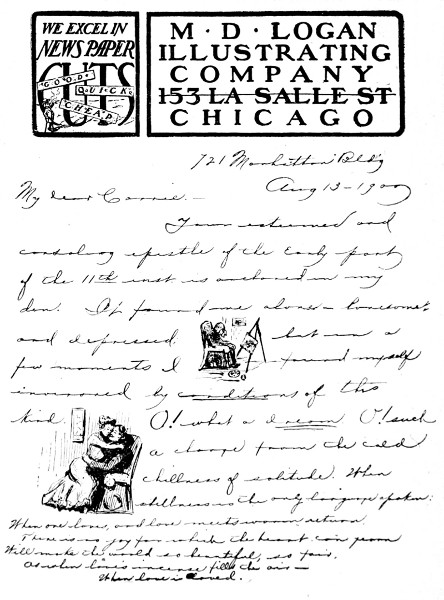 WE EXCEL IN
NEWS PAPER
CUTS
GOOD
QUICK
CHEAP
M · D · LOGAN
ILLUSTRATING
COMPANY
153 LA SALLE ST
CHICAGO
721 Manhattan Bldg
Aug 13 - 1900
My dear Connie. -
Your esteemed and
consoling epistle of the Early part
of the 11th inst. is anchored in my
den. It found me alone - lonesome
and depressed but in a
few moments I found myself
environed by conditions of this
kind. O! what a dream O! such
a change from the cold
chillness of solitude. When
stillness is the only language spoken:
When one loves, and love meets warm return
There is no joy for which the heart can yearn
Will make the world so beautiful, so fair,
As when love's incense fills the air -
When love is loved.